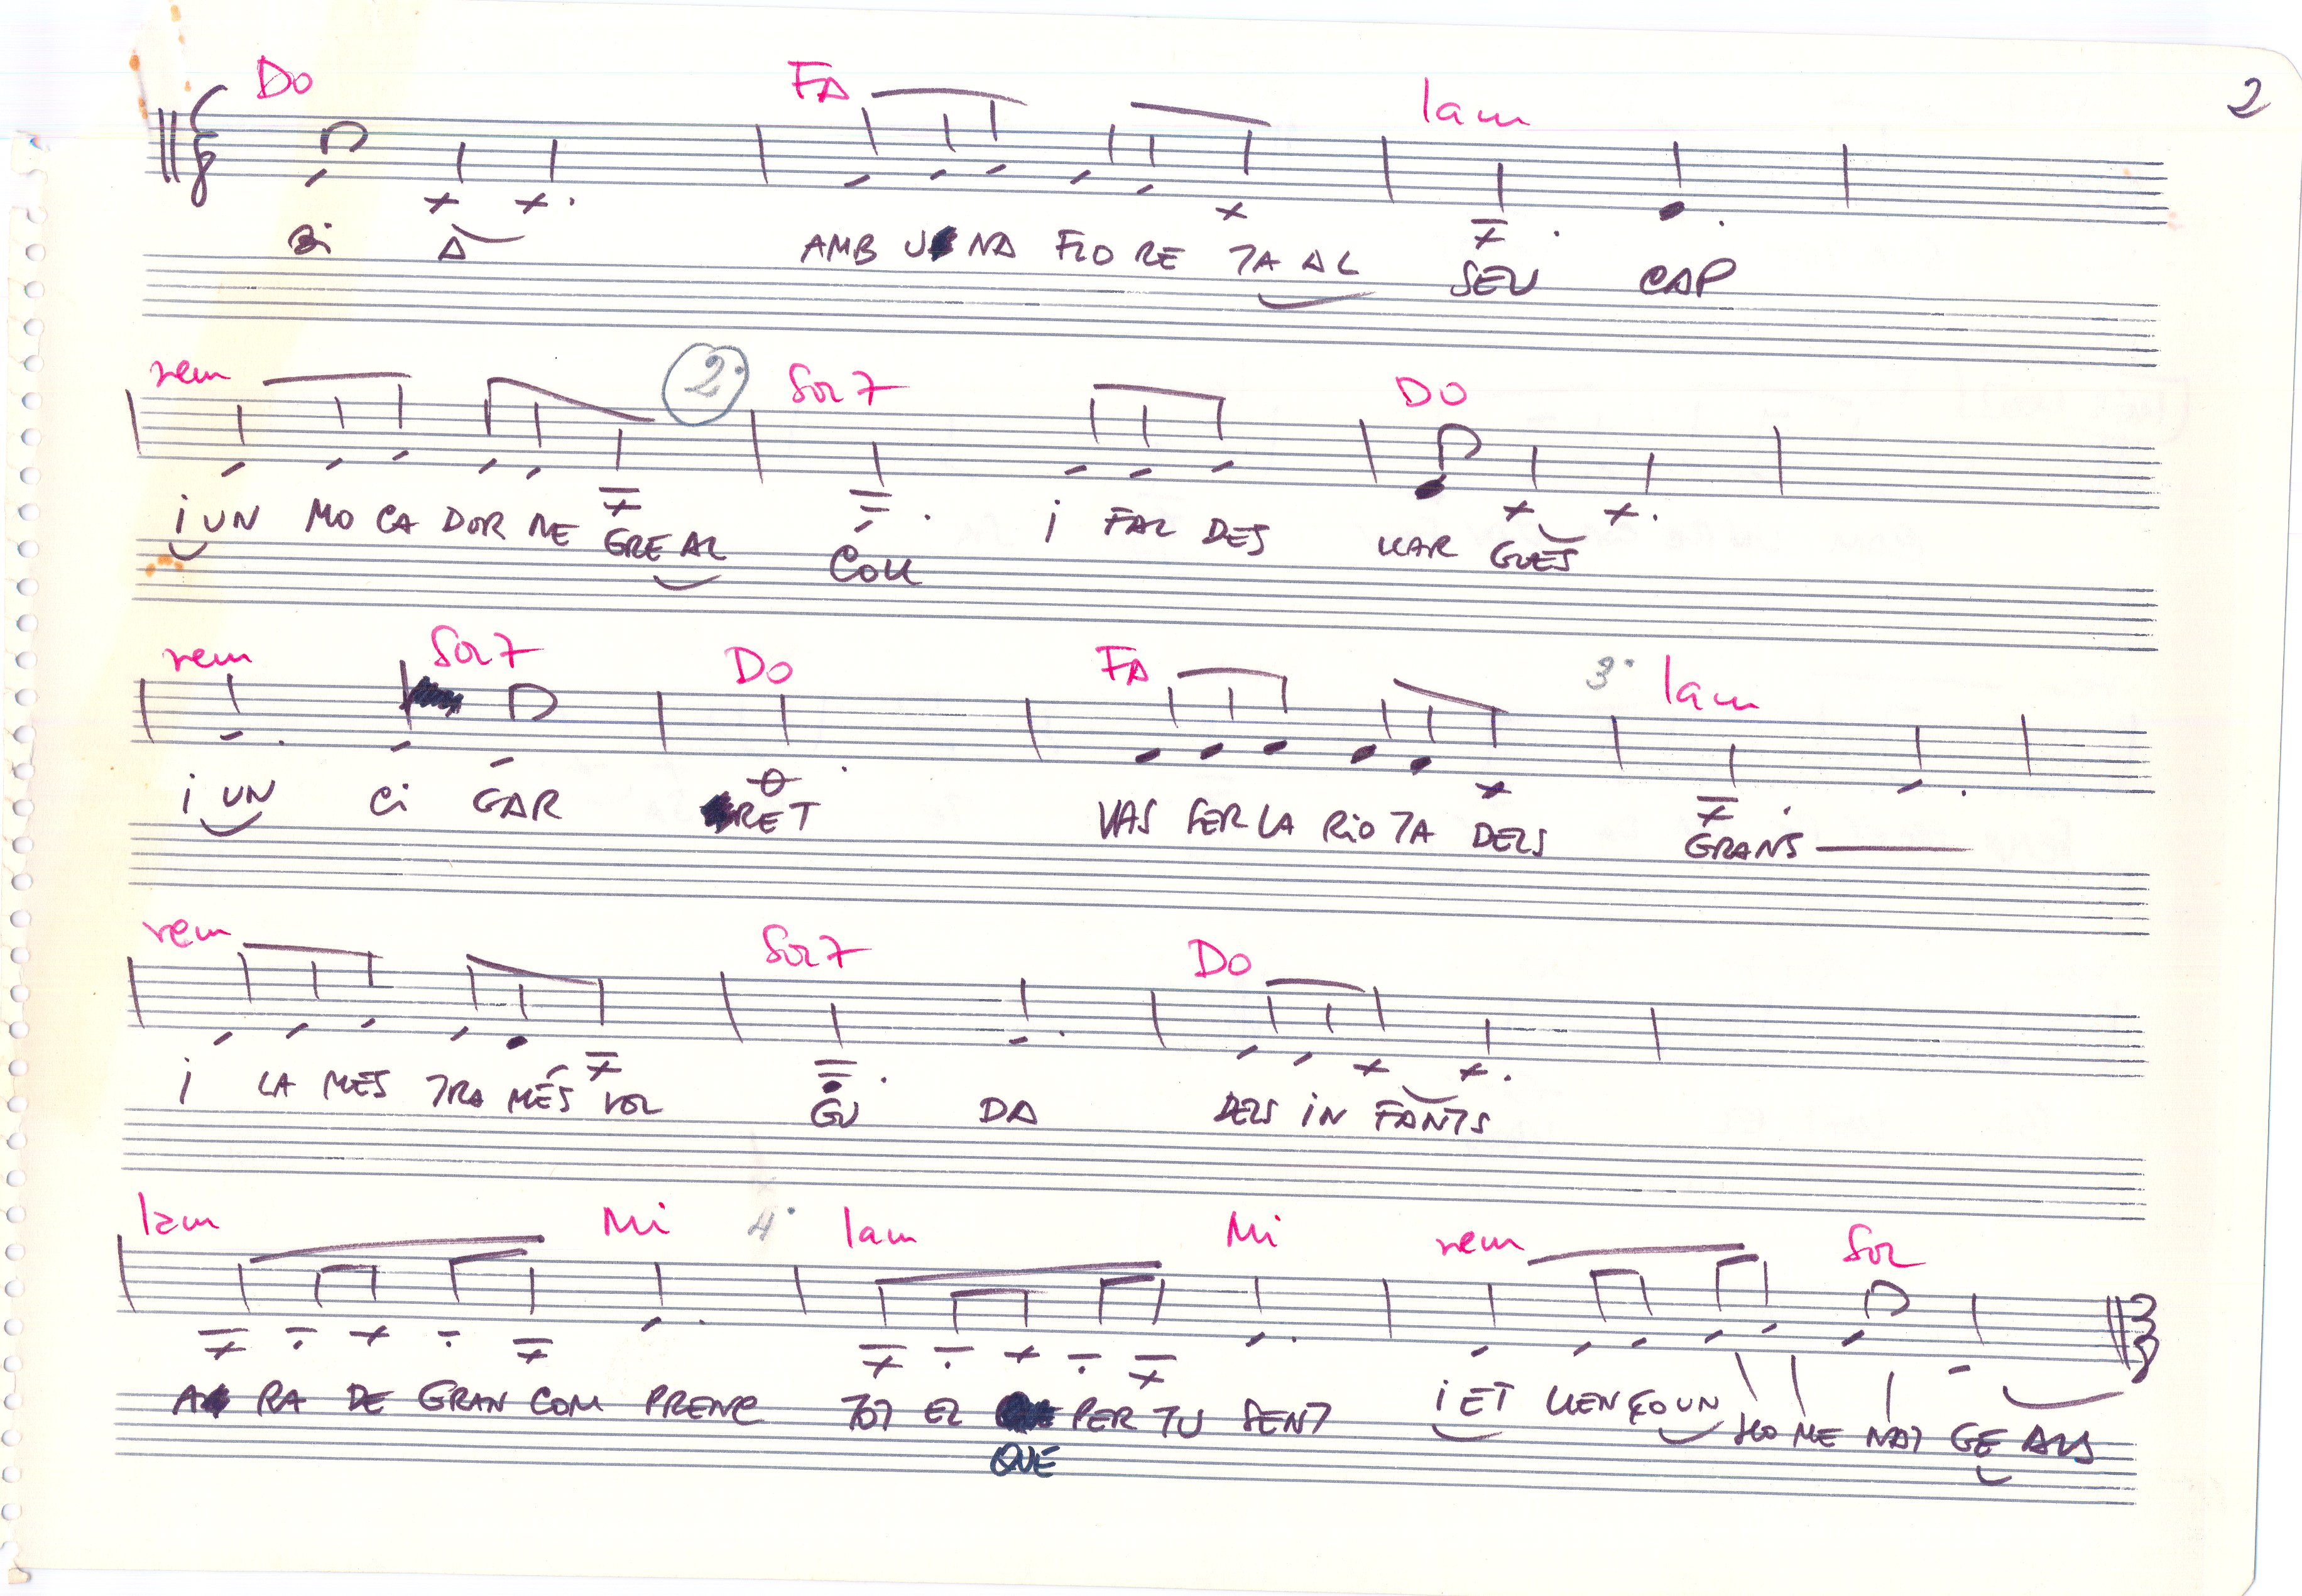 2
Do FA lam
Bi A AMB U NA FLO RE TA AL SEU CAP
rem 2. Sol7 Do
i UN MO CA DOR NE GRE AL COLL i FAL DES LLAR GUES
rem Sol7 Do FA 3. lam
i UN Ci GAR RET VAS FER LA RiO TA DELS GRANS
rem Sol7 Do
i LA MÉS TRA MÉS VOL GU DA DELS iN FANTS
lam Mi 4. lam Mi rem Sol
A RA DE GRAN COM PRENC TOT EL PER TU SENT i ET LLEN ÇO UN HO ME NAT GE ALS
QUE